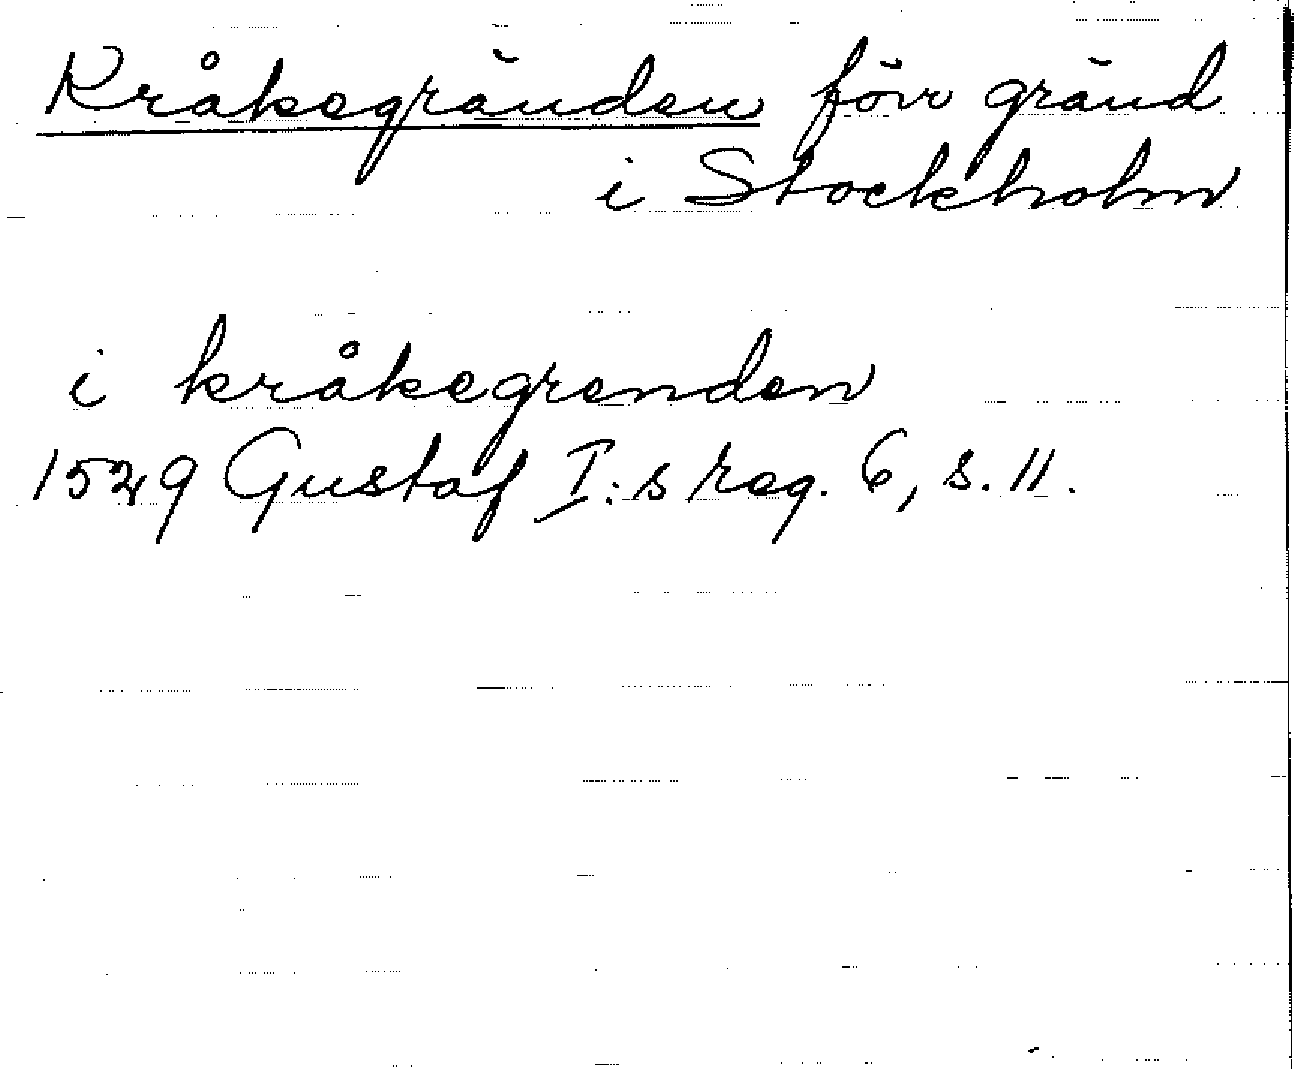 Kråkegränden förr gränd
i Stockholm
i kråkegrenden
1529 Gustaf I:s reg. 6, s. 11.